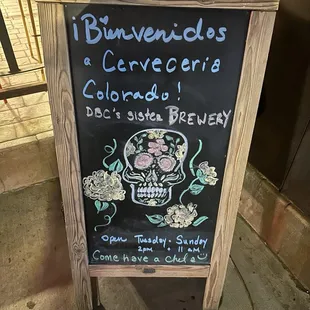 ¡Bienvenidos
a Cervecería
Colorado!
DBC's sister BREWERY
Open Tuesday - Sunday
2pm 11am
Come have a chela